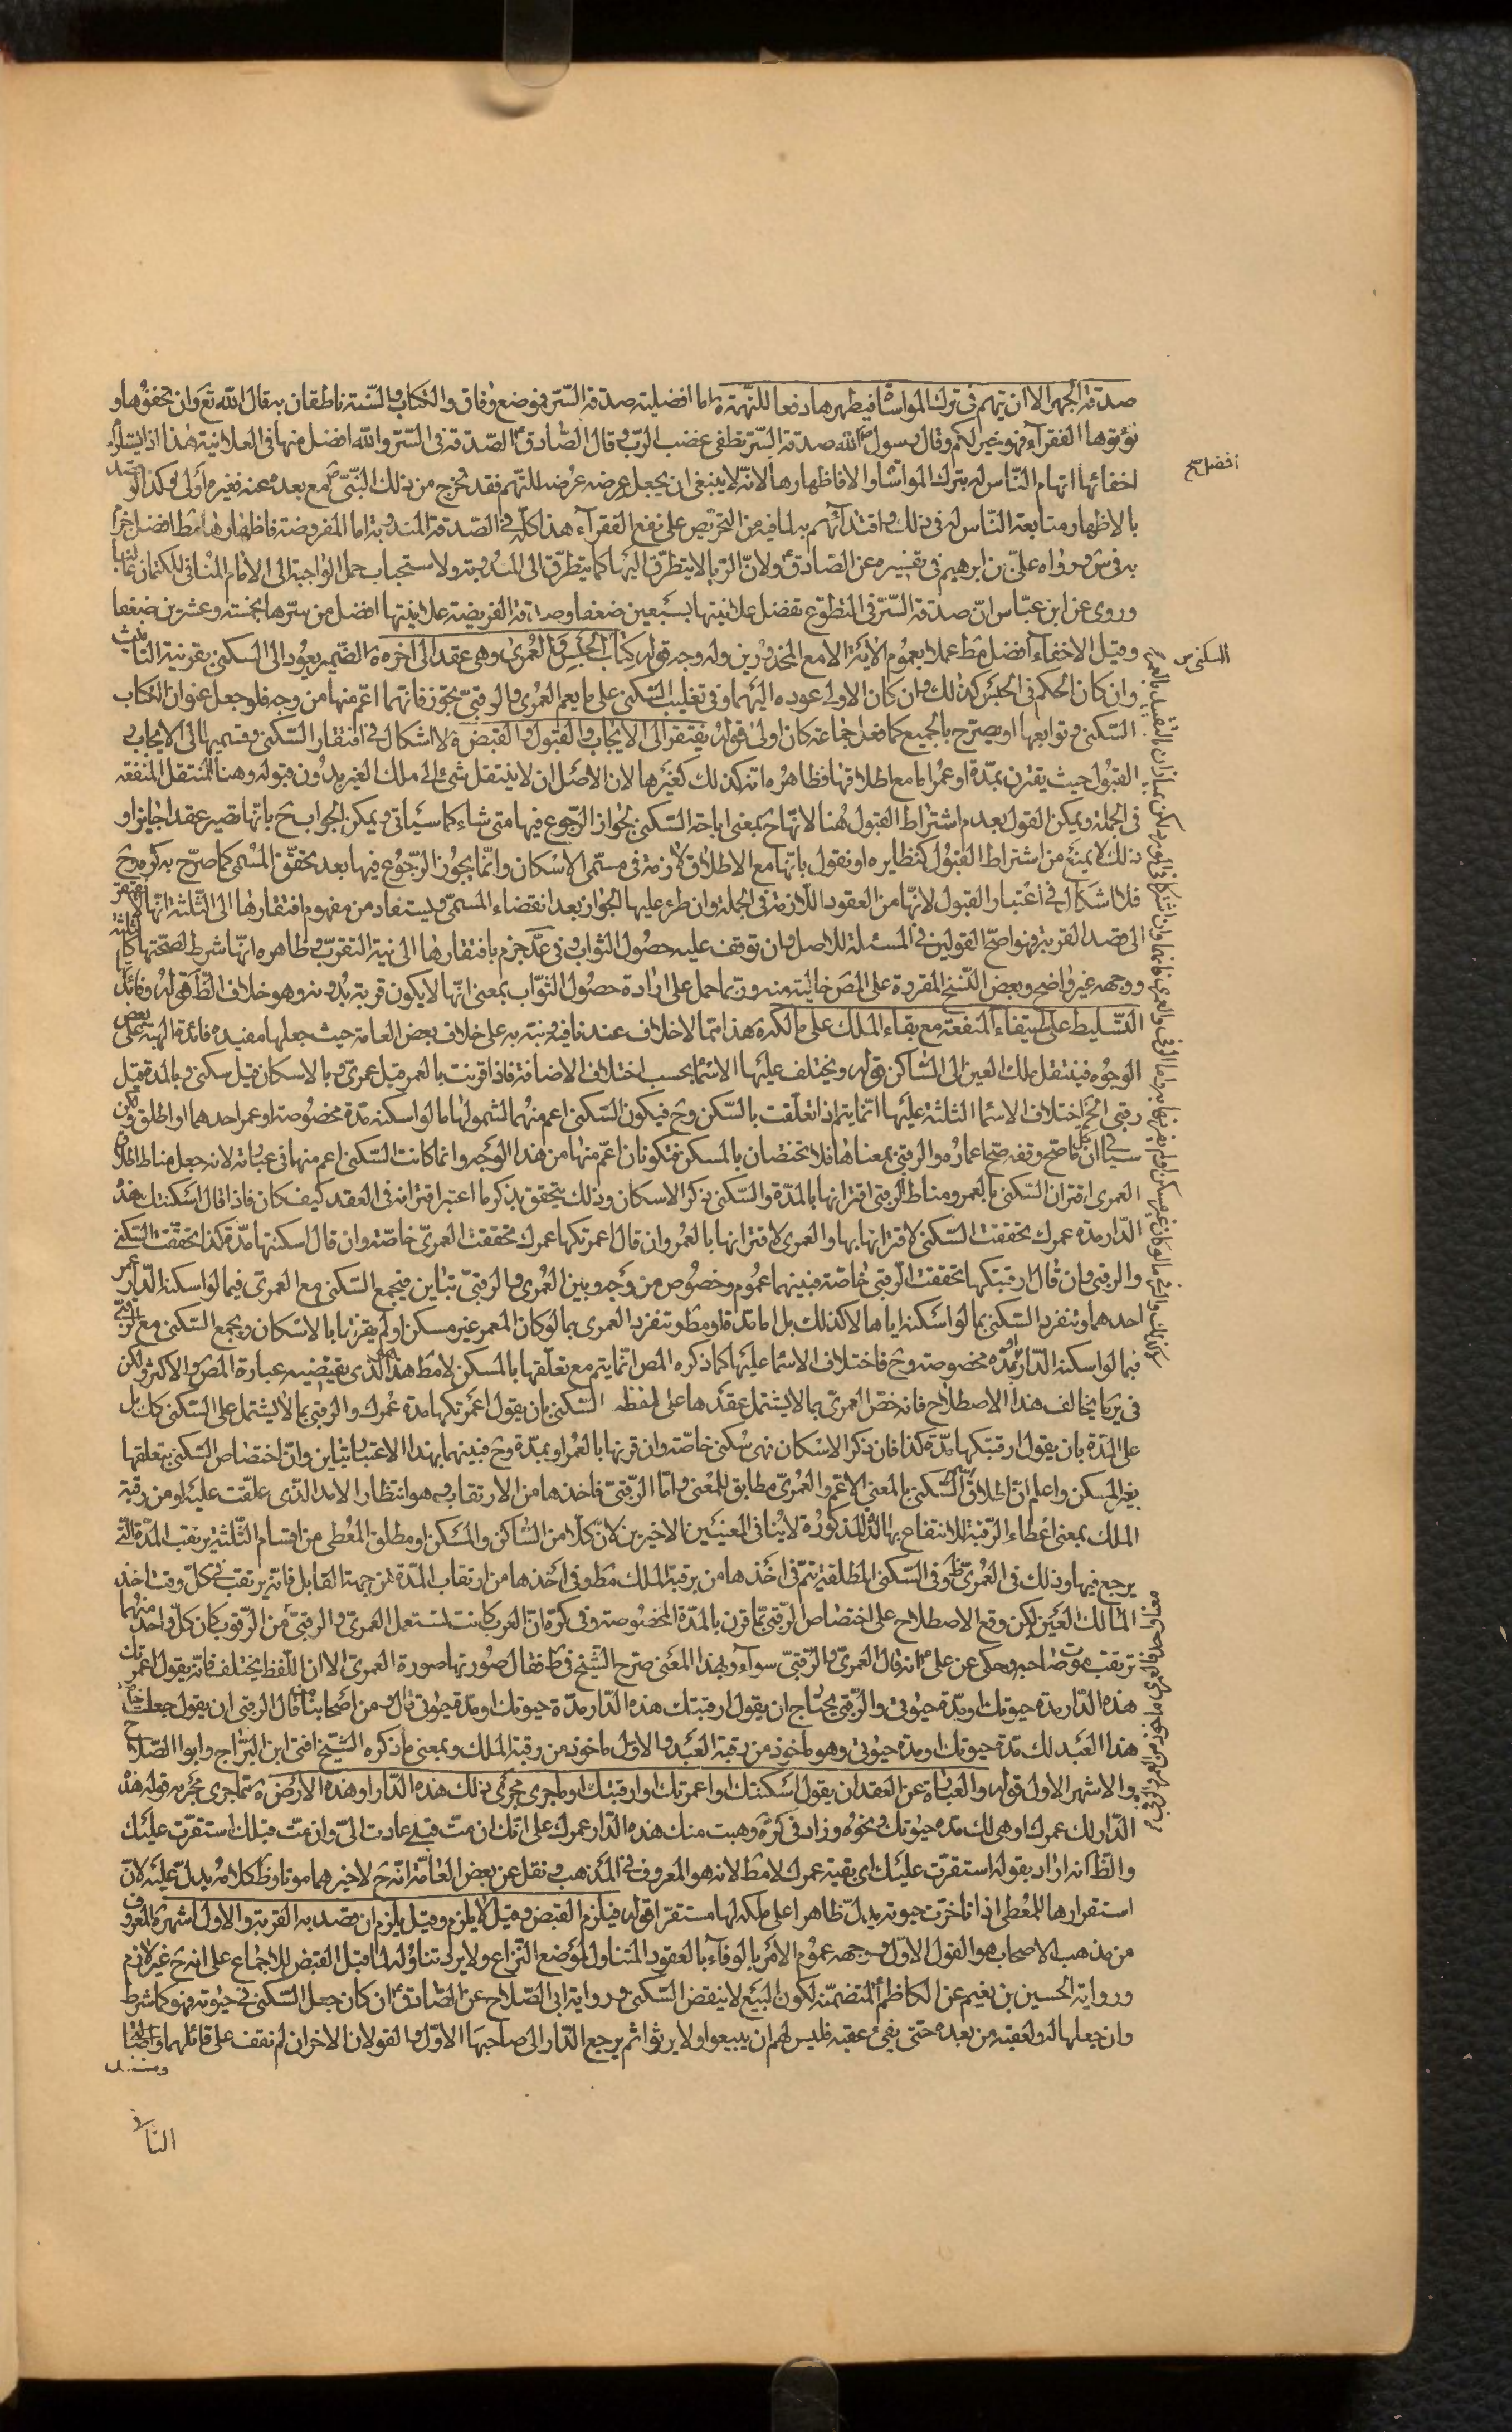 صدقة الجهر الا ان يتهم فى ترك المواساة فيظهرها دفعا للتهمة اما افضلية صدقة السر فموضع وفاق والكتاب والسنة ناطقان به قال الله تع وان تخفوها و
تؤتوها الفقرآء فهو خير لكم وقال رسول الله صدقة السر تطفى غضب الرب وقال الصادق الصدقة فى السر والله افضل منها فى العلانية هذا اذا لم يستلزم
اخفائها اتهام الناس له بترك المواساة والا فاظهارها لانه لا ينبغى ان يجعل عرضه عرضة للتهم فقد تحرج من ذلك النبى مع بعده عنه فغيره اولى وكذا لو قصد
بالاظهار متابعة الناس له فى ذلك واقتدائهم به لما فيه من التحريص على نفع الفقرآء هذا كله فى الصدقة المندوبة اما المفروضة فاظهارها مط افضل جزم
به فى س ورواه على بن ابرهيم فى تفسيره عن الصادق ولان الريا لا يتطرق اليها كما يتطرق الى المندوبة ولاستحباب حمل الواجبة الى الامام المنافى للكتمان غالبا
وروى عن ابن عباس ان صدقة السر فى التطوع تفضل علانيتها بسبعين ضعفا وصدقة الفريضة علانيتها افضل من سرها بخمسة وعشرين ضعفا
وقيل الاخفاء افضل مط عملا بعموم الآية الا مع المحذورين وله وجه قوله كتاب الحبس والعمرى وهى عقد الى اخره الضمير يعود الى السكنى بقرينة التانيث
وان كان الحكم فى الحبس كذلك وان كان الاولى عوده اليهما وفى تغليب السكنى على ما يعم العمرى والرقبى تجوز فانهما اعم منها من وجه فلو جعل عنوان الكتاب
السكنى وتوابعها او يصرح بالجميع كما فعل جماعة كان اولى قوله يفتقر الى الايجاب والقبول والقبض لا اشكال فى افتقار السكنى وقسميها الى الايجاب و
القبول حيث يقترن بمدة او عمر اما مع اطلاقها فظاهره انه كذلك كغيرها لان الاصل ان لا ينتقل شئ الى ملك الغير بدون قبوله وهنا المنتقل المنفعة
فى الجملة ويمكن القول بعدم اشتراط القبول هنا لانها ح بمعنى اباحة السكنى لجواز الرجوع فيها متى شاء كما سياتى ويمكن الجواب ح بانها تصير عقدا جايزا و
ذلك لا يمنع من اشتراط القبول كنظايره او نقول بانها مع الاطلاق لازمة فى مسمى الاسكان وانما يجوز الرجوع فيها بعد تحقق المسمى كما صرح به كره وح
فلا اشكال فى اعتبار القبول لانها من العقود اللازمة فى الجملة وان طرء عليها الجواز بعد انقضاء المسمى ويستفاد من مفهوم افتقارها الى الثلثة انها لا تفتقر
الى قصد القربة وهو اصح القولين فى المسئلة للاصل وان توقف عليه حصول الثواب وفى عد جزم بافتقارها الى نية التقرب وظاهره انها شرط لصحتها
ووجهه غير واضح وبعض النسخ المقروة على المص خالية منه وربما حمل على ارادة حصول الثواب بمعنى انها لا يكون قربة بدونه وهو خلاف الظ قوله وفائدتها
التسليط على استيفاء المنفعة مع بقاء الملك على مالكه هذا مما لا خلاف عندنا فيه ونبه به على خلاف بعض العامة حيث جعلها مفيدة فائدة الهبة على بعض
الوجوه فينتقل ملك العين الى الساكن قوله ويختلف عليها الاسماء بحسب اختلاف الاضافة فاذا اقرنت بالعمر قيل عمرى وبالاسكان قيل سكنى وبالمدة قيل
رقبى الخ اختلاف الاسماء الثلثة عليها انما يتم اذا تعلقت بالسكن وح فيكون السكنى اعم منهما لشمولها ما لو اسكنه مدة مخصوصة او عمر احدهما او اطلق ولكن
سياتى ان كلما صح وقفه صح اعماره والرقبى بمعناها فلا تختصان بالمسكن فتكونان اعم منها من هذا الوجه وانما كانت السكنى اعم منها فى عبارته لانه جعل مناط اطلاق
العمرى اقتران السكنى بالعمر ومناط الرقبى اقترانها بالمدة والسكنى بذكر الاسكان وذلك يتحقق بذكر ما اعتبر اقترانه فى العقد كيف كان فاذا قال اسكنتك هذه
الدار مدة عمرك تحققت السكنى لاقترانها بها والعمرى لاقترانها بالعمر وان قال اعمرتكها عمرك تحققت العمرى خاصة وان قال اسكنتها مدة كذا تحققت السكنى
والرقبى وان قال ارقبتكها تحققت الرقبى خاصة فبينهما عموم وخصوص من وجه وبين العمرى والرقبى تباين فيجمع السكنى مع العمرى فيما لو اسكنه الدار عمر
احدهما وتنفرد السكنى بما لو اسكنه اياها لا كذلك بل اما مدة او مط وتنفرد العمرى بما لو كان المعمر غير مسكن او لم يقرنها بالاسكان ويجمع السكنى مع الرقبى
فيما لو اسكنه الدار مدة مخصوصة وح فاختلاف الاسماء عليها كما ذكره المص انما يتم مع تعلقها بالمسكن لا مط هذا الذى يقتضيه عبارة المص والاكثر ولكن
فى ير ما يخالف هذا الاصطلاح فانه خص العمرى بما لا يشتمل عقدها على لفظة السكنى بان يقول اعمرتكها مدة عمرك والرقبى بما لا يشتمل على السكنى كك بل
على المدة بان يقول ارقبتكها مدة كذا فان ذكر الاسكان فهى سكنى خاصة وان قرنها بالعمر او بمدة وح فبينهما بهذا الاعتبار تباين وان اختصاص السكنى بتعلقها
بغير المسكن واعلم ان اطلاق السكنى بالمعنى الاعم والعمرى مطابق للمعنى واما الرقبى فاخذها من الارتقاب وهو انتظار الامد الذى علقت عليه او من رقبة
الملك بمعنى اعطاء الرقبة للانتفاع بها المدة المذكورة لا ينافى المعنيين الاخيرين لان كلا من الساكن والمسكن او مطلق المعطى من اقسام الثلثة يرتقب المدة التى
يرجع فيها وذلك فى العمرى ظ وفى السكنى المطلقة يتم فى اخذها من رقبة الملك مط وفى اخذها من ارتقاب المدة من جهة القابل فانه يرتقب فى كل وقت اخذ
المالك العين لكن وقع الاصطلاح على اختصاص الرقبى بما قرن بالمدة المخصوصة وفى كره ان العرب كانت تستعمل العمرى والرقبى من الرقوب كان كل واحد منهما
ترتقب موت صاحبه وحكى عن على انه قال العمرى والرقبى سوآء وبهذا المعنى صرح الشيخ فى ط فقال صورتها صورة العمرى الا ان اللفظ يختلف فانه يقول اعمرتك
هذه الدار مدة حيوتك او مدة حيوتى والرقبى يحتاج ان يقول ارقبتك هذه الدار مدة حيوتك او مدة حيوتى قال ومن اصحابنا من قال الرقبى ان يقول جعلت خدمة
هذا العبد لك مدة حيوتك او مدة حيوتى وهو ماخوذ من رقبة العبد والاول ماخوذ من رقبة الملك وبمعنى ما ذكره الشيخ افتى ابن البراج وابو الصلاح
والاشهر الاول قوله والعبارة عن العقد ان يقول اسكنتك واعمرتك وارقبتك او ما جرى مجرى ذلك هذه الدار او هذه الارض مما جرى مجريه قوله هذه
الدار لك عمرك او هى لك مدة حيوتك ونحوه وزاد فى كره وهبت منك هذه الدار عمرك على انك ان مت قبلى عادت الى وان مت قبلك استقرت عليك
والظ انه اراد بقوله استقرت عليك اى بقية عمرك لا مط لانه هو المعروف فى المذهب ونقل عن بعض العامة انه ح لاخيرهما موتا وظ كلامه يدل عليه لان
استقرارها للمعطى اذا تاخرت حيوته يدل ظاهرا على ملكه لها مستقرا قوله فيلزم القبض وقيل لا يلزم وقيل يلزم ان قصد به القربة والاول اشهر المعروف
من مذهب الاصحاب هو القول الاول ووجهه عموم الامر بالوفاء بالعقود المتناول لموضع النزاع ولا يرد تناوله لما قبل القبض للاجماع على انه ح غير لازم
ورواية الحسين بن نعيم عن الكاظم المتضمنة لكون البيع لا ينقض السكنى ورواية ابى الصلاح عن الصادق ان كان جعل السكنى فى حيوته فهو كما شرط
وان جعلها له ولعقبه من بعده حتى يفنى عقبه فليس لهم ان يبيعوا ولا يرثوا ثم يرجع الدار الى صاحبها الاول والقولان الاخران لم نقف على قائلهما
افضل صح
السكنى س